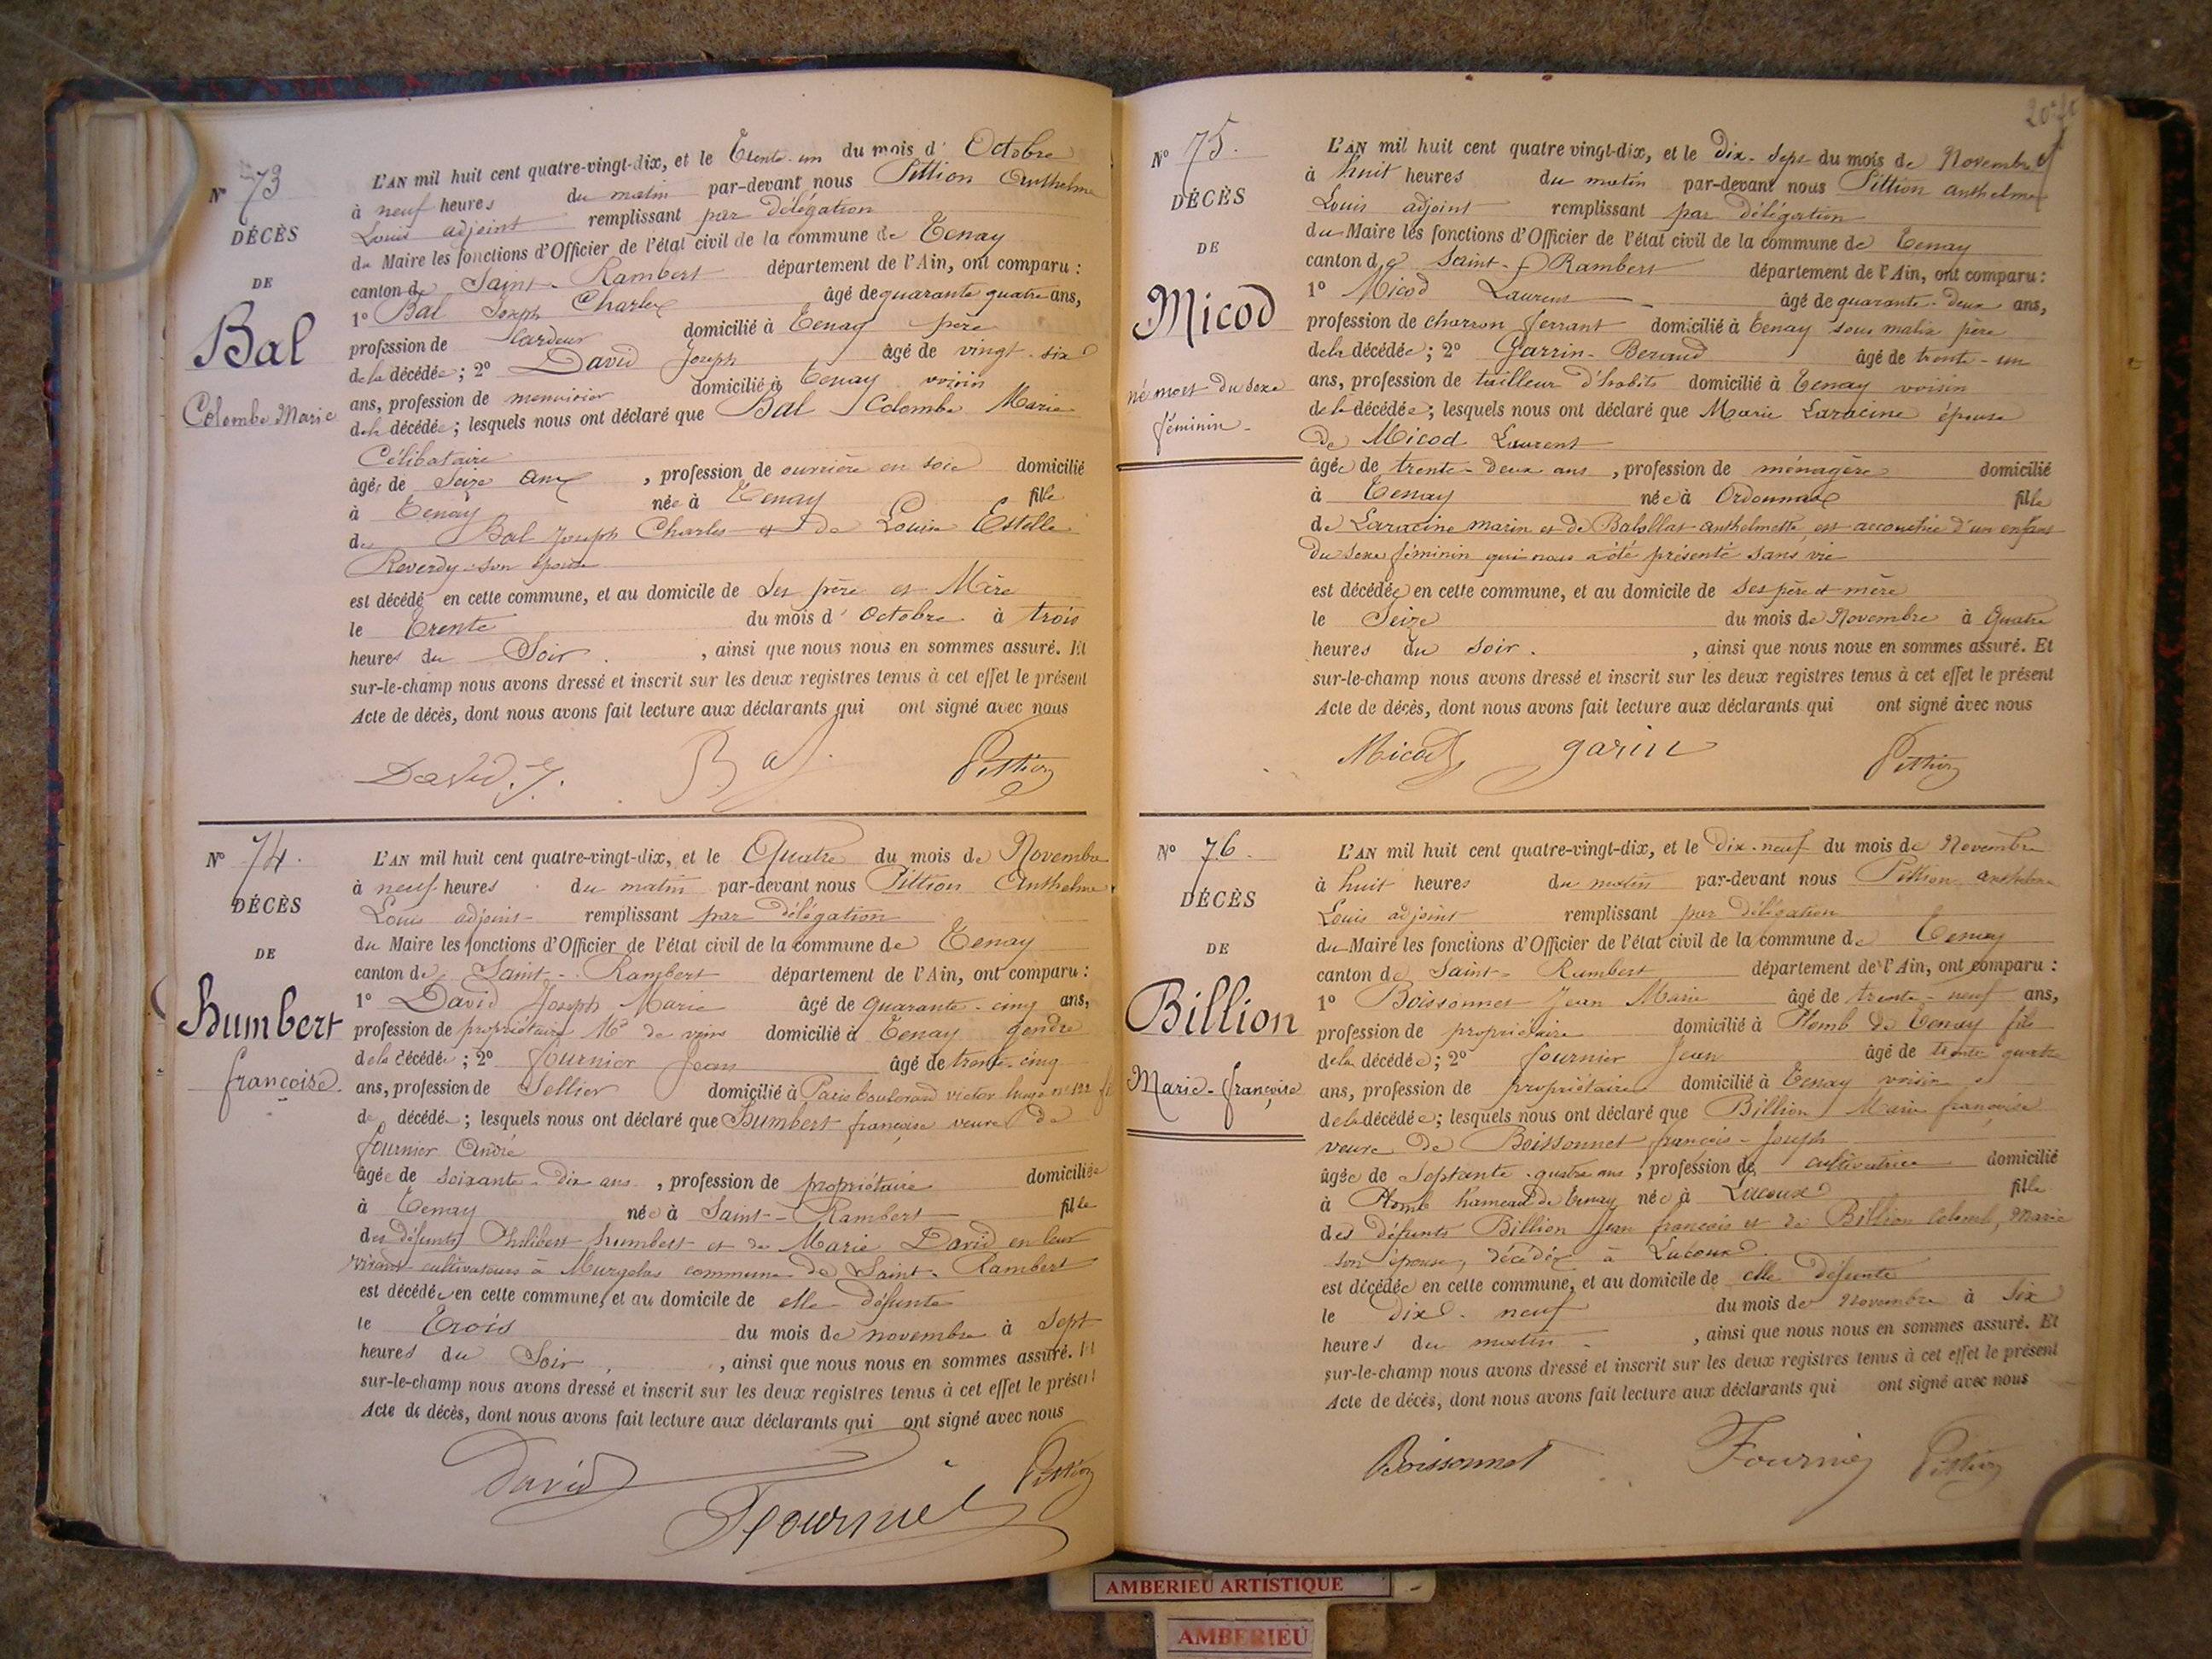 N° 73
DÉCÈS
DE
Bal
Colombe Marie
L'AN mil huit cent quatre-vingt-dix, et le Trente-un du mois d' Octobre
à neuf heures du matin par-devant nous Pittion Anthelme
Louis adjoint remplissant par délégation
du Maire les fonctions d'Officier de l'état civil de la commune de Tenay
canton de Saint-Rambert département de l'Ain, ont comparu :
1° Bal Joseph Charles âgé de quarante quatre ans,
profession de Cardeur domicilié à Tenay père
de la décédée ; 2° David Joseph âgé de vingt-six
ans, profession de menuisier domicilié à Tenay voisin
de la décédée ; lesquels nous ont déclaré que Bal Colombe Marie
Célibataire
âgée de Seize ans , profession de ouvrière en soie domicilié
à Tenay née à Tenay fille
des Bal Joseph Charles et de Louise Estelle
Reverdy son épouse
est décédé en cette commune, et au domicile de Ses père et Mère
le Trente du mois d' Octobre à trois
heures du Soir . , ainsi que nous nous en sommes assuré. Et
sur-le-champ nous avons dressé et inscrit sur les deux registres tenus à cet effet le présent
Acte de décès, dont nous avons fait lecture aux déclarants qui ont signé avec nous
David. J. Bal Pittion
N° 74.
DÉCÈS
DE
Humbert
françoise.
L'AN mil huit cent quatre-vingt-dix, et le Quatre du mois de Novembre
à neuf heures du matin par-devant nous Pittion Anthelme
Louis adjoint remplissant par délégation
du Maire les fonctions d'Officier de l'état civil de la commune de Tenay
canton de Saint-Rambert département de l'Ain, ont comparu :
1° David Joseph Marie âgé de quarante-cinq ans,
profession de propriétaire Md de vins domicilié à Tenay gendre
de la décédée ; 2° fournier Jean âgé de trente-cinq
ans, profession de Sellier domicilié à Paris boulevard victor hugo n° 122
de décédée ; lesquels nous ont déclaré que Humbert françoise veuve de
fournier André
âgée de soixante-dix ans , profession de propriétaire domiciliée
à Tenay née à Saint-Rambert fille
des défunts Philibert humbert et de Marie David en leur
vivant cultivateurs à Murgelas commune de Saint-Rambert
est décédée en cette commune, et au domicile de elle défunte
le Trois du mois de novembre à Sept
heures du Soir , ainsi que nous nous en sommes assuré. Et
sur-le-champ nous avons dressé et inscrit sur les deux registres tenus à cet effet le présent
Acte de décès, dont nous avons fait lecture aux déclarants qui ont signé avec nous
David Fournier Pittion
N° 75.
DÉCÈS
DE
Micod
né mort du sexe
féminin-
L'AN mil huit cent quatre vingt-dix, et le dix-sept du mois de Novembre
à huit heures du matin par-devant nous Pittion anthelme
Louis adjoint remplissant par délégation
du Maire les fonctions d'Officier de l'état civil de la commune de Tenay
canton de Saint-Rambert département de l'Ain, ont comparu :
1° Micod Laurent âgé de quarante-deux ans,
profession de charron ferrant domicilié à Tenay sous malix père
de la décédée ; 2° Garrin-Beraud âgé de trente-un
ans, profession de tailleur d'habits domicilié à Tenay voisin
de la décédée ; lesquels nous ont déclaré que Marie Laracine épouse
de Micod Laurent
âgée de trente-deux ans , profession de ménagère domicilié
à Tenay née à Ordonnaz fille
de Laracine marin et de anthelmette est accouchée d'un enfant
du sexe féminin qui nous a été présenté sans vie
est décédée en cette commune, et au domicile de ses père et mère
le Seize du mois de Novembre à Quatre
heures du soir. , ainsi que nous nous en sommes assuré. Et
sur-le-champ nous avons dressé et inscrit sur les deux registres tenus à cet effet le présent
Acte de décès, dont nous avons fait lecture aux déclarants qui ont signé avec nous
Micod garin Pittion
N° 76.
DÉCÈS
DE
Billion
Marie-françoise
L'AN mil huit cent quatre-vingt-dix, et le dix-neuf du mois de Novembre
à huit heures du matin par-devant nous Pittion anthelme
Louis adjoint remplissant par délégation
du Maire les fonctions d'Officier de l'état civil de la commune de Tenay
canton de Saint-Rambert département de l'Ain, ont comparu :
1° Boissonnet Jean Marie âgé de trente-neuf ans,
profession de propriétaire domicilié à Plomb de Tenay fils
de la décédée ; 2° fournier Jean âgé de trente quatre
ans, profession de propriétaire domicilié à Tenay voisin
de la décédée ; lesquels nous ont déclaré que Billion Marie françoise
veuve de Boissonnet françois-Joseph
âgée de Septante-quatre ans , profession de cultivatrice domicilié
à Plomb hameau de Tenay née à Lacoux fille
des défunts Billion Jean françois et de Billion Colomb, Marie
son épouse, décédés à Lacoux
est décédée en cette commune, et au domicile de elle défunte
le Dix-neuf du mois de Novembre à Six
heures du matin - , ainsi que nous nous en sommes assuré. Et
sur-le-champ nous avons dressé et inscrit sur les deux registres tenus à cet effet le présent
Acte de décès, dont nous avons fait lecture aux déclarants qui ont signé avec nous
Boissonnet Fournier Pittion
AMBERIEU ARTISTIQUE
AMBERIEU